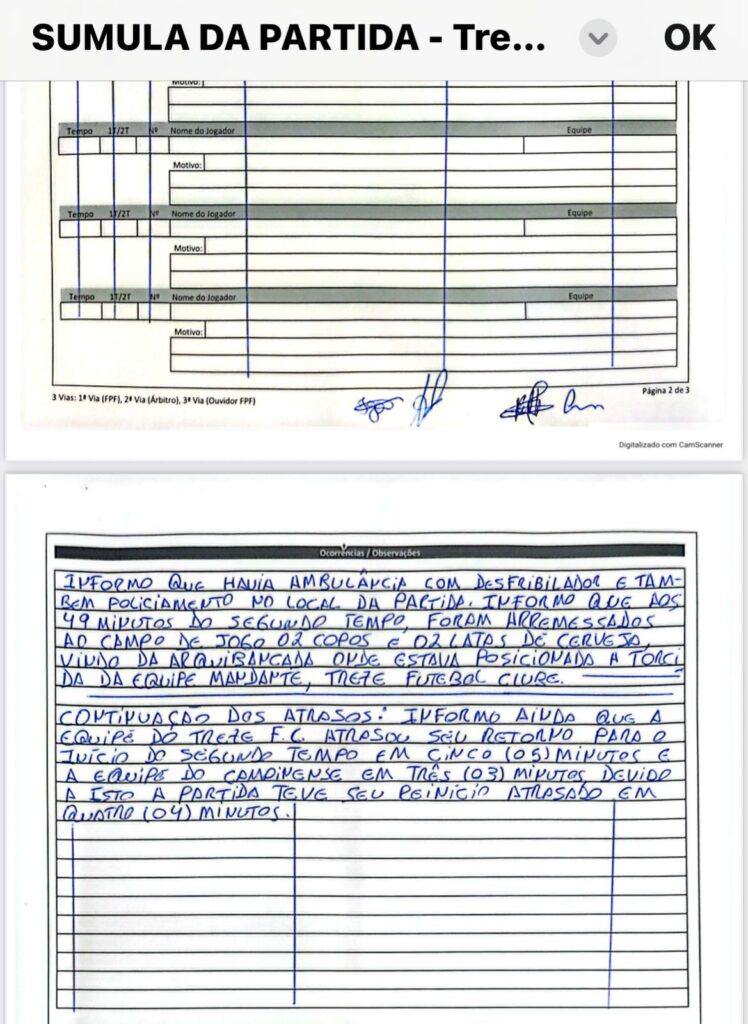 SUMULA DA PARTIDA - Tre...
OK
Motivo:
Tempo 1T/2T Nº Nome do Jogador Equipe
Motivo:
Tempo 1T/2T Nº Nome do Jogador Equipe
Motivo:
Tempo 1T/2T Nº Nome do Jogador Equipe
Motivo:
3 Vias: 1ª Via (FPF), 2ª Via (Árbitro), 3ª Via (Ouvidor FPF)
Página 2 de 3
Digitalizado com CamScanner
Ocorrências / Observações
INFORMO QUE HAVIA AMBULÂNCIA COM DESFRIBILADOR E TAM-
BEM POLICIAMENTO NO LOCAL DA PARTIDA. INFORMO QUE AOS
49 MINUTOS DO SEGUNDO TEMPO, FORAM ARREMESSADOS
AO CAMPO DE JOGO 02 COPOS E 02 LATAS DE CERVEJA,
VINDO DA ARQUIBANCADA ONDE ESTAVA POSICIONADA A TORCI
DA DA EQUIPE MANDANTE, TREZE FUTEBOL CLUBE.
CONTINUAÇÃO DOS ATRASOS: INFORMO AINDA QUE A
EQUIPE DO TREZE F.C. ATRASOU SEU RETORNO PARA O
INÍCIO DO SEGUNDO TEMPO EM CINCO (05) MINUTOS E
A EQUIPE DO CAMPINENSE EM TRÊS (03) MINUTOS, DEVIDO
A ISTO A PARTIDA TEVE SEU REINÍCIO ATRASADO EM
QUATRO (04) MINUTOS.